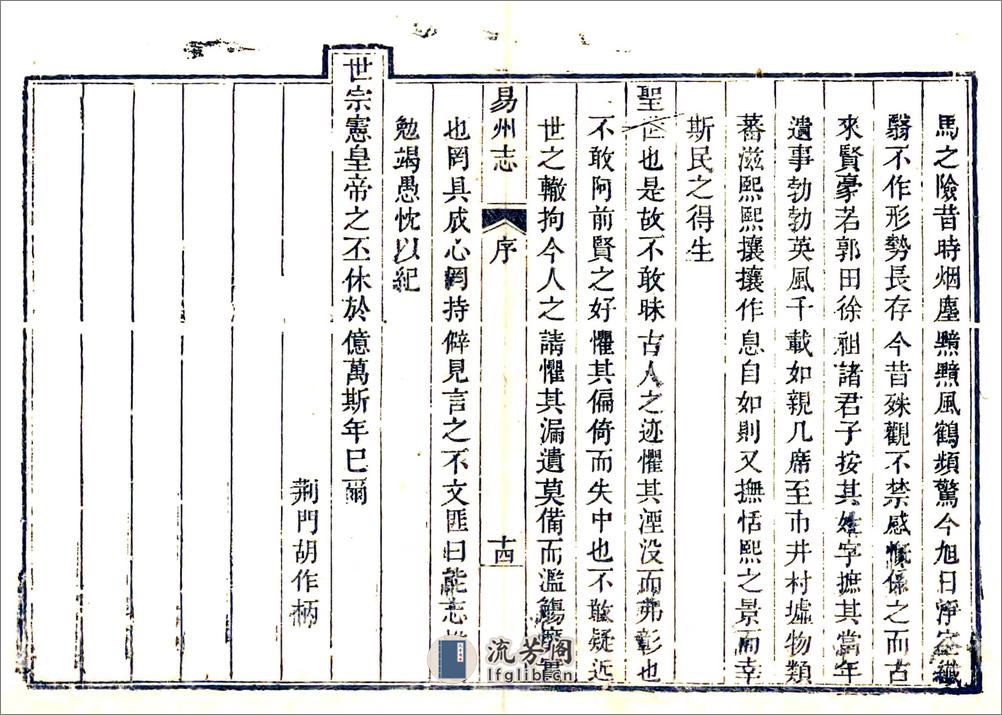 馬之險昔時烟塵黯黯風鶴頻驚今旭日淨空纖
翳不作形勢長存今昔殊觀不禁感慨係之而古
來賢豪若郭田徐祖諸君子按其姓字摭其當年
遺事勃勃英風千載如親几席至市井村墟物類
蕃滋熙熙攘攘作息自如則又撫恬熙之景而幸
斯民之得生
聖世也是故不敢昧古人之迹懼其湮没而弗彰也
不敢阿前賢之好懼其偏倚而失中也不敢疑近
世之轍拘今人之請懼其漏遺莫備而濫觴靡實
易州志
序
十四
也罔具成心罔持僻見言之不文匪曰能志
勉竭愚忱以紀
世宗憲皇帝之丕休於億萬斯年已爾
荆門胡作柄
流芳阁
lfglib.cn